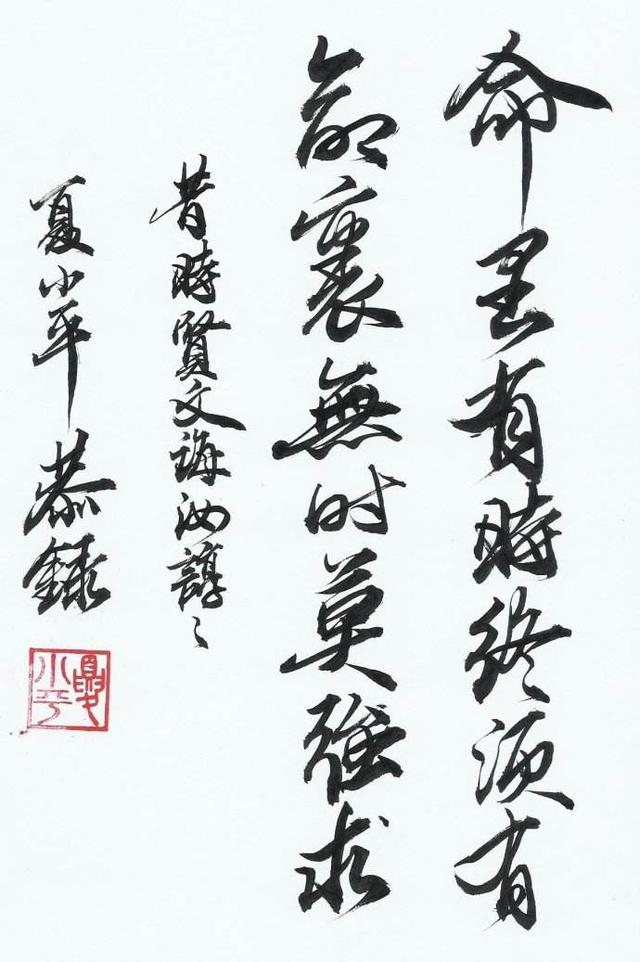 命里有時終須有
命裏無时莫強求
昔時賢文誨汝諄〻
夏小平恭錄
夏小平